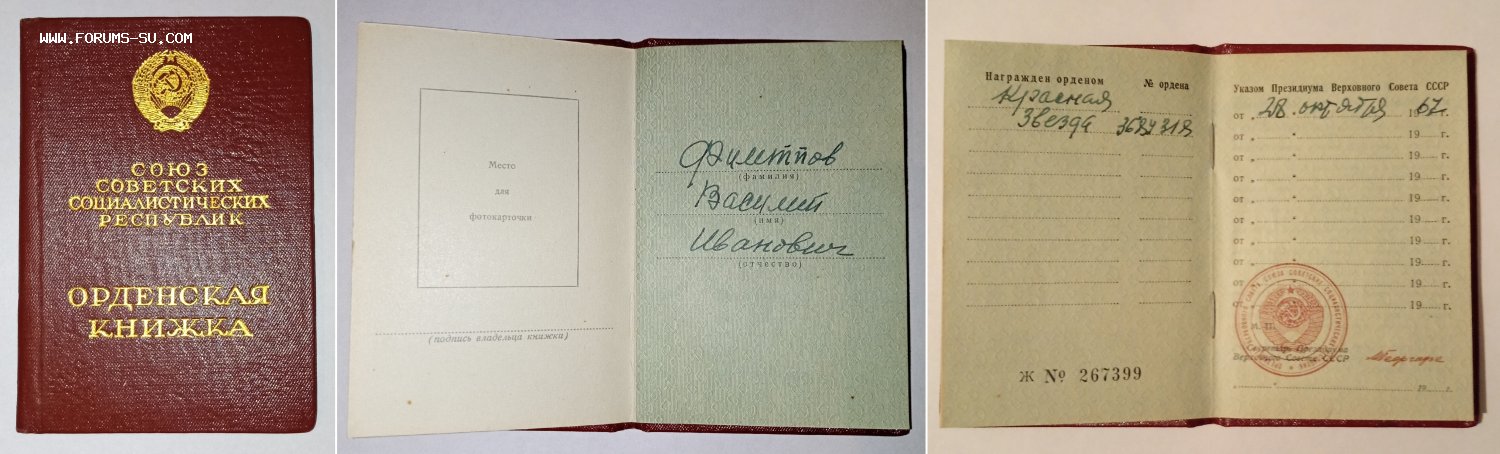 WWW.FORUMS-SU.COM
СОЮЗ
СОВЕТСКИХ
СОЦИАЛИСТИЧЕСКИХ
РЕСПУБЛИК
ОРДЕНСКАЯ
КНИЖКА
Место
для
фотокарточки
(подпись владельца книжки)
Филиппов
(фамилия)
Василий
(имя)
Иванович
(отчество)
Награжден орденом № ордена
Красная
Звезда
Ж № 267399
Указом Президиума Верховного Совета СССР
от „ 28 " октября 1967 г.
от „ " 19 г.
от „ " 19 г.
от „ " 19 г.
от „ " 19 г.
от „ " 19 г.
от „ " 19 г.
от „ " 19 г.
от „ " 19 г.
от „ " 19 г.
М. П.
Секретарь Президиума
Верховного Совета СССР
19 г.